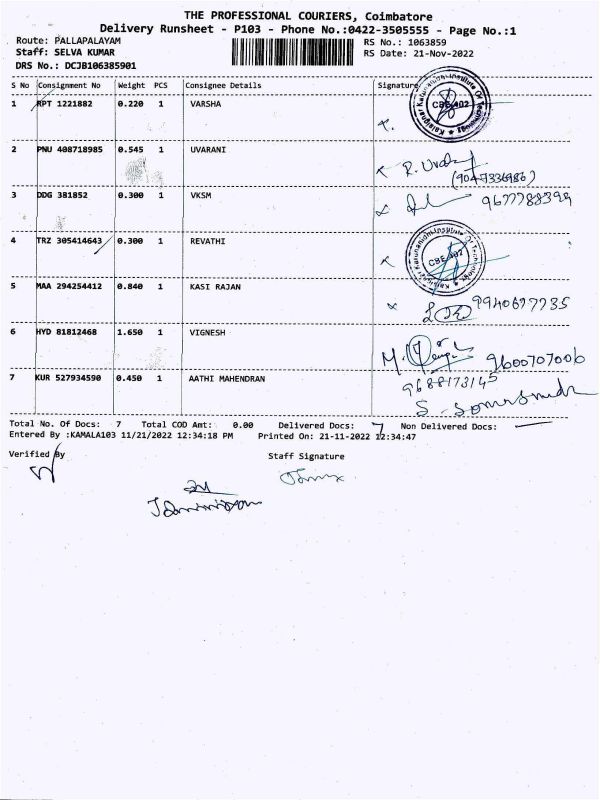 THE PROFESSIONAL COURIERS, Coimbatore
Delivery Runsheet - P103 - Phone No.:0422-3505555 - Page No.:1
Route: PALLAPALAYAM RS No.: 1063859
Staff: SELVA KUMAR RS Date: 21-Nov-2022
DRS No.: DCJB106385901
S No Consignment No Weight PCS Consignee Details Signature
1 RPT 1221882 0.220 1 VARSHA
Kalaignar Karunanidhi Institute Of Technology
CBE 402
2 PNU 408718985 0.545 1 UVARANI
3 DDG 381852 0.300 1 VKSM 9677788399
4 TRZ 305414643 0.300 1 REVATHI
Kalaignar Karunanidhi Institute Of Technology
CBE 402
5 MAA 294254412 0.840 1 KASI RAJAN
9940677735
6 HYD 81812468 1.650 1 VIGNESH
9600707006
7 KUR 527934590 0.450 1 AATHI MAHENDRAN
9688173145
Total No. Of Docs: 7 Total COD Amt: 0.00 Delivered Docs: 7 Non Delivered Docs: —
Entered By :KAMALA103 11/21/2022 12:34:18 PM Printed On: 21-11-2022 12:34:47
Verified By Staff Signature